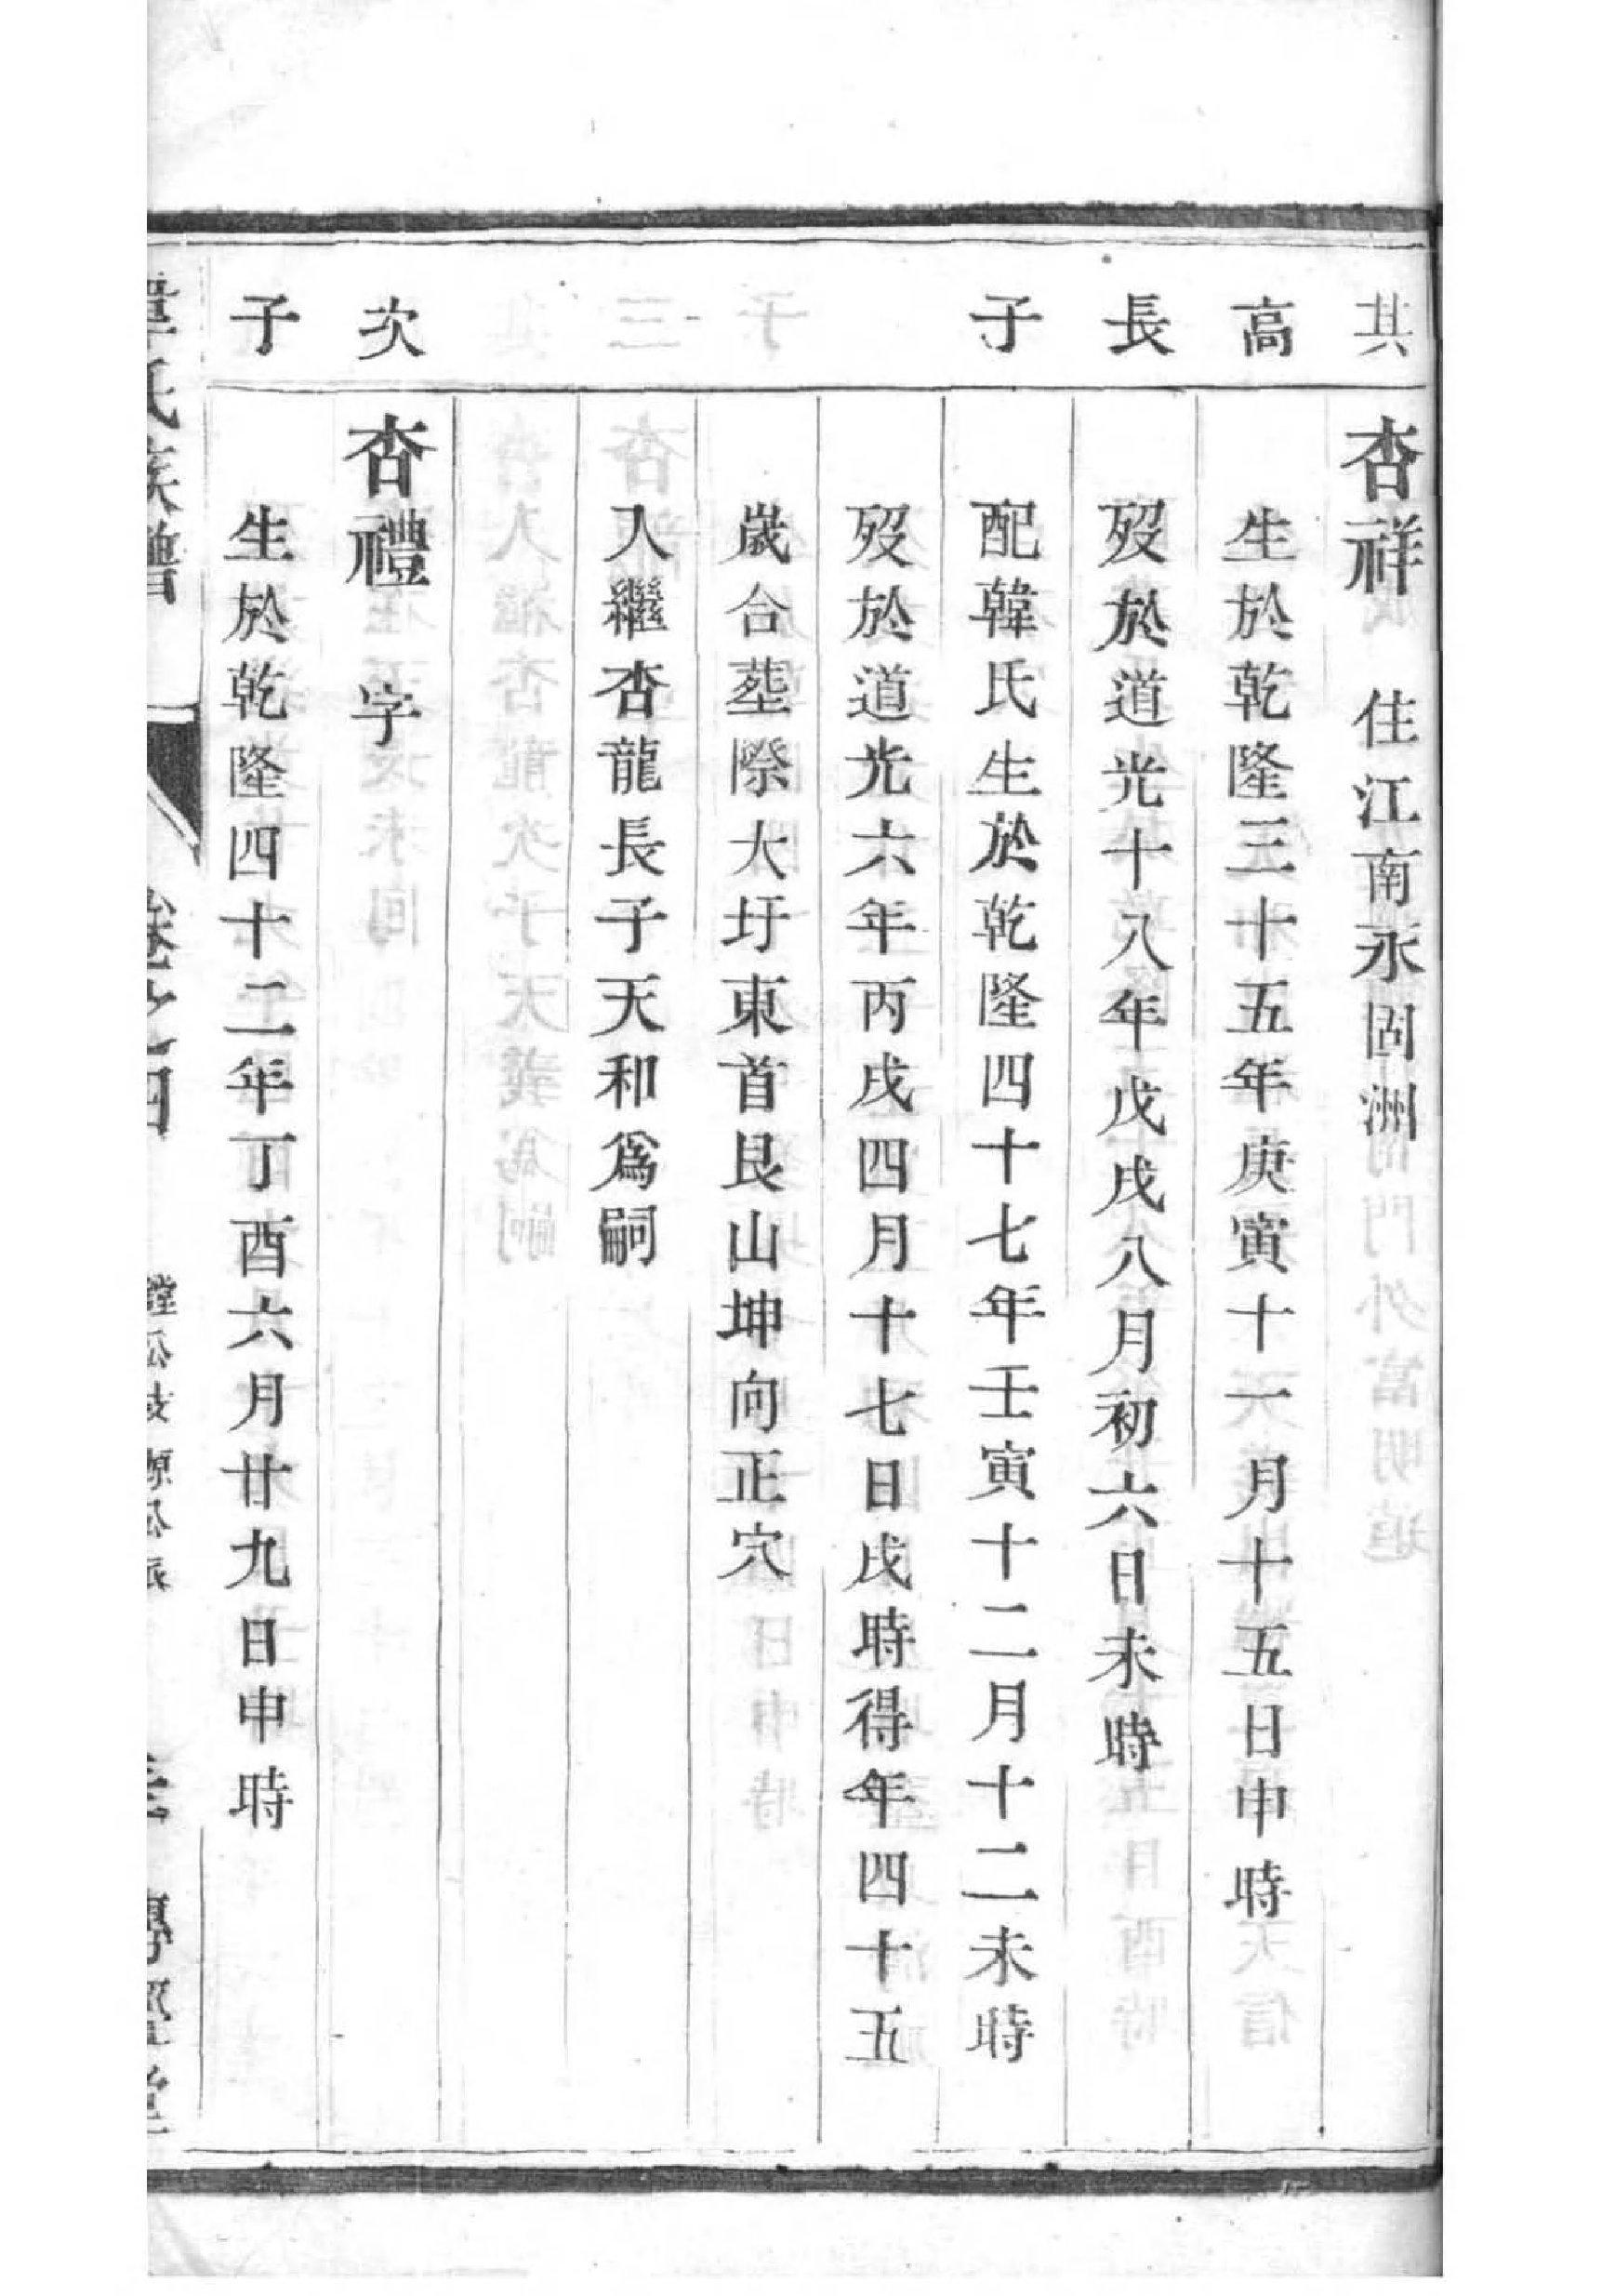 其高長子
杏祥 住江南永固洲
生於乾隆三十五年庚寅十一月十五日申時
歿於道光十八年戊戌八月初六日未時
配韓氏生於乾隆四十七年壬寅十二月十二未時
歿於道光六年丙戌四月十七日戌時得年四十五
歲合塟際大圩東首艮山坤向正穴
入繼杏龍長子天和爲嗣
次子
杏禮 字
生於乾隆四十二年丁酉六月廿九日申時
氏族譜 卷之四